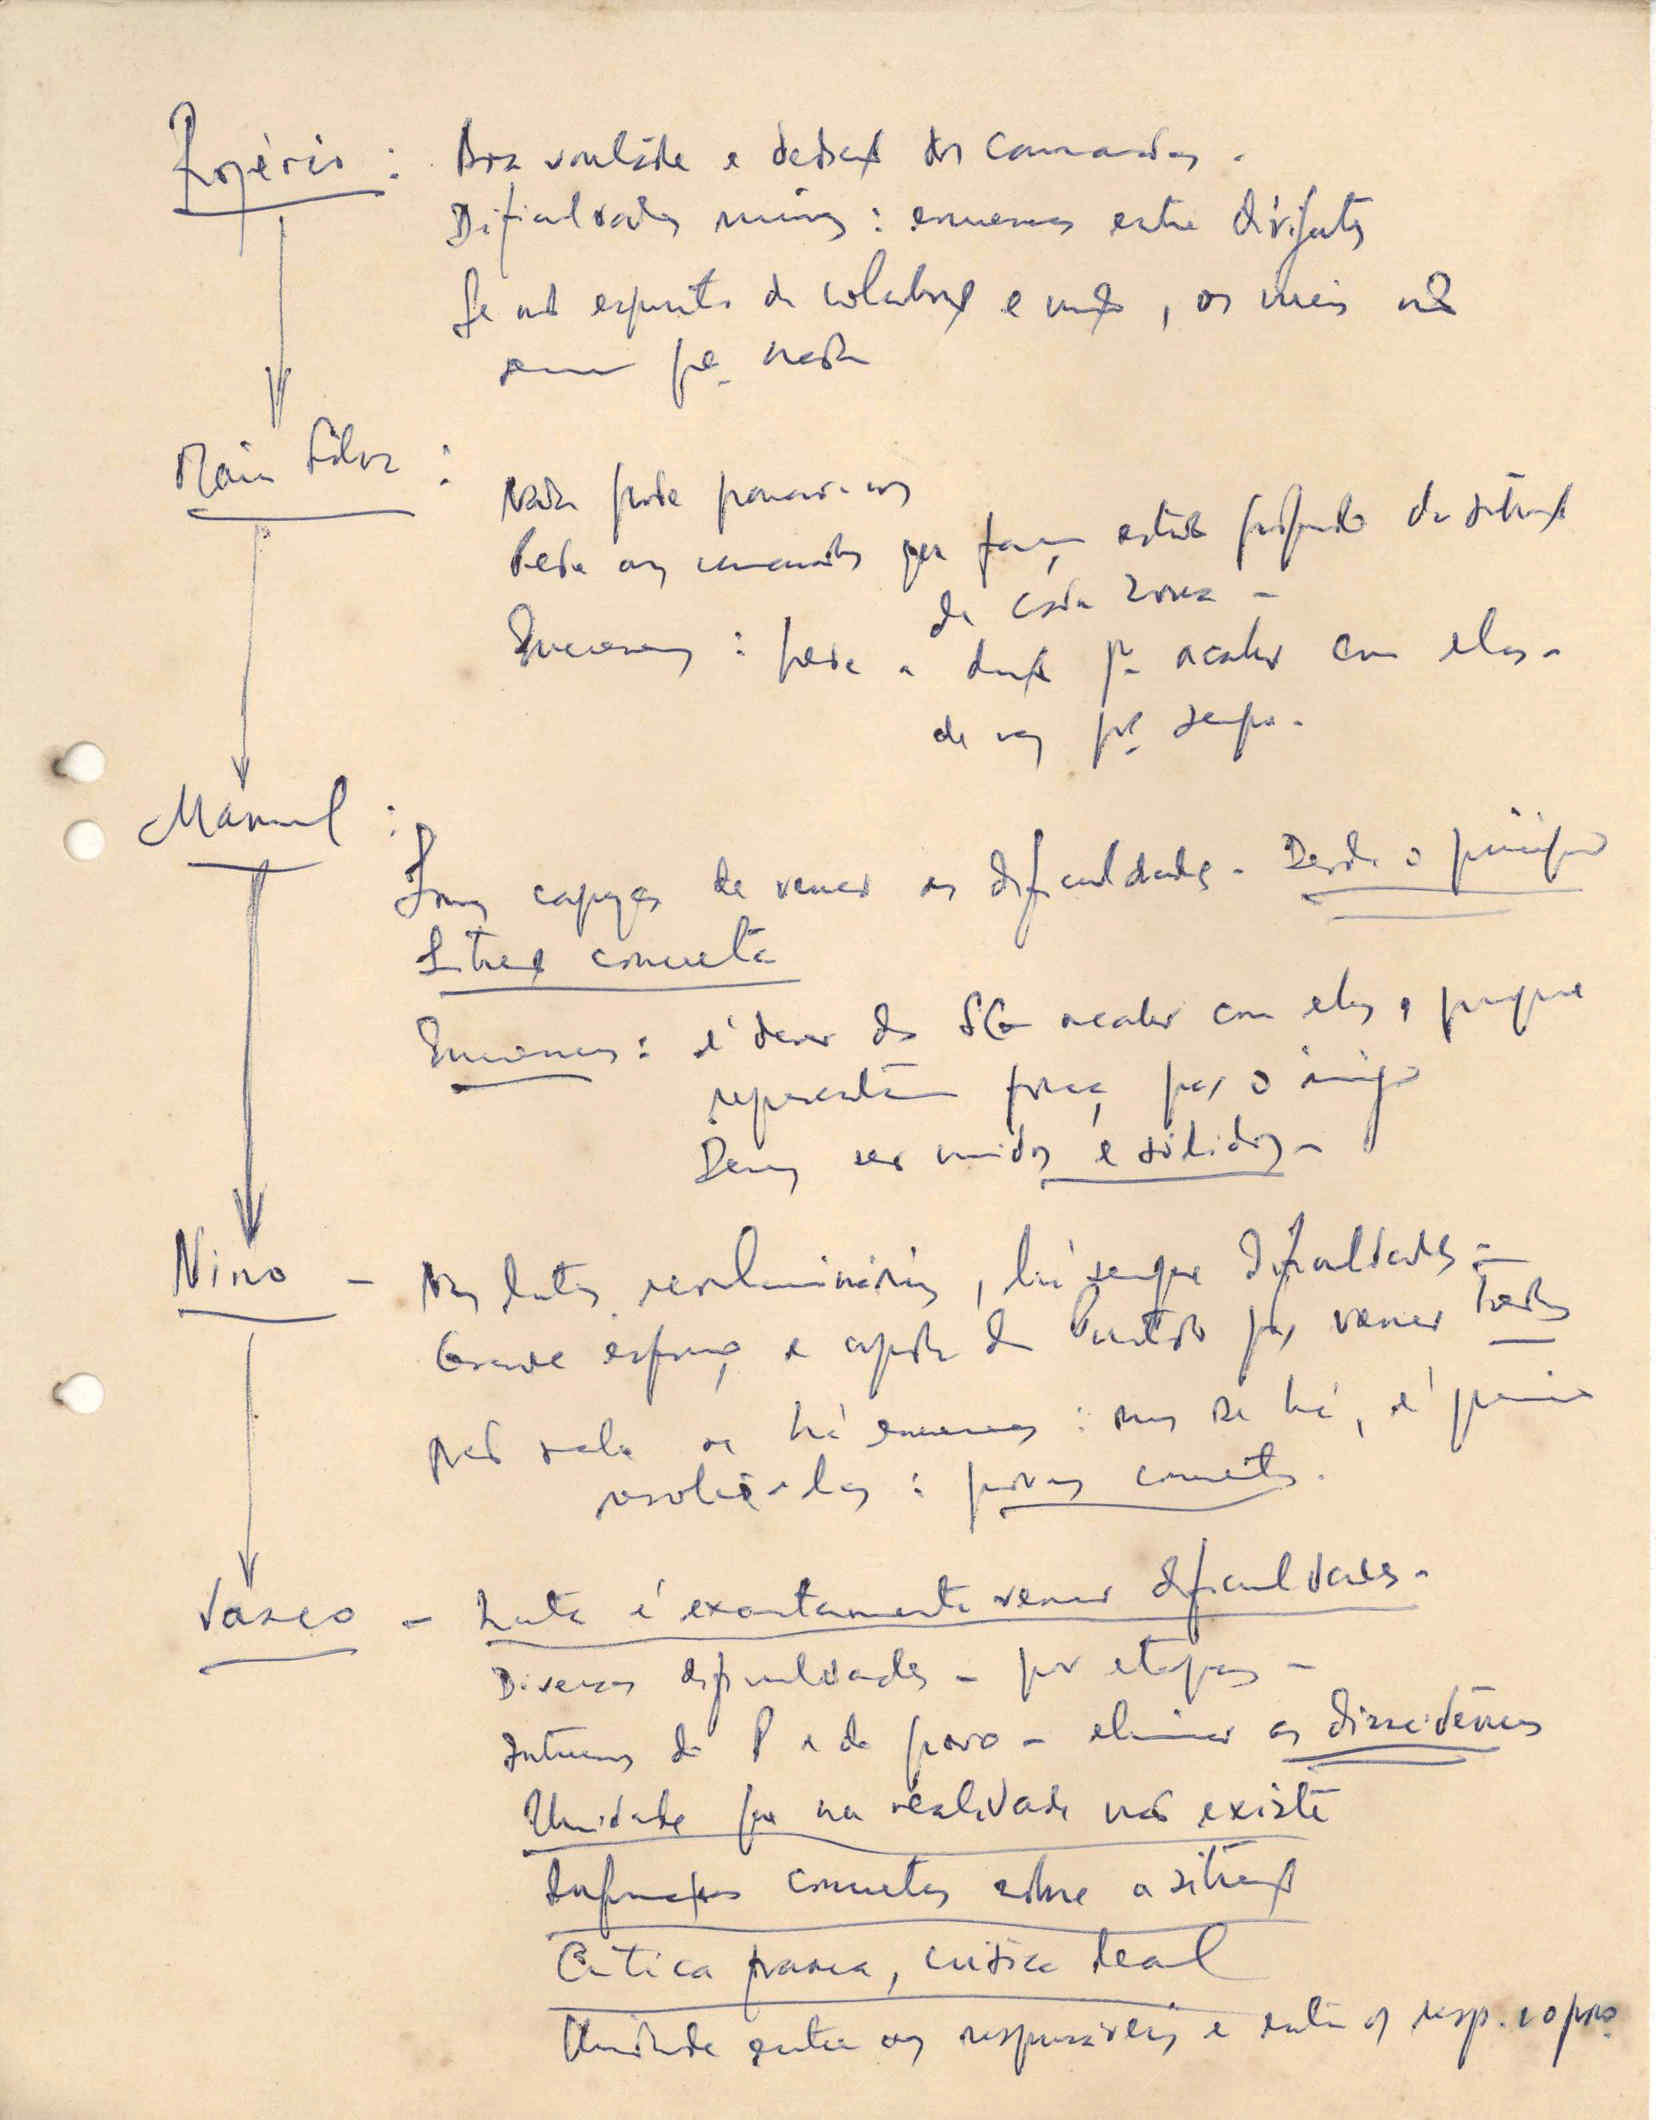 Rogério : Boa vontade e dedicaç. dos camaradas.
Dificuldades várias : conversas entre dirigentes
Se não espírito de colaboraç e união, os meios não
servem pª nada
Mário Silva :
Nada pode parar-nos
Pede aos camaradas que façam estudo profundo da situaç
de cada zona -
Conversas : pede a direcç pª acabar com elas -
de vez pª sempre.
Manuel :
Somos capazes de vencer as dificuldades - Desde o princípio
Situaç concreta
Conversas : é dever do SG acabar com elas, porque
representam força para o inimigo
Devemos ser unidos e sólidos -
Nino - Nas lutas revolucionárias, há sempre dificuldades -
Grande esforço e ajuda do Partido para vencer todas
Não sabe se há conversas : mas se há, é preciso
resolvê-las : provas concretas.
Vasco - Luta é exactamente vencer dificuldades -
Diversas dificuldades - por etapas -
Internas do P e do povo - eliminar as dissidências
Unidade que na realidade não existe
Informações concretas sobre a situaç
Crítica franca, crítica leal
Unidade entre os responsáveis e entre os resp. e o povo